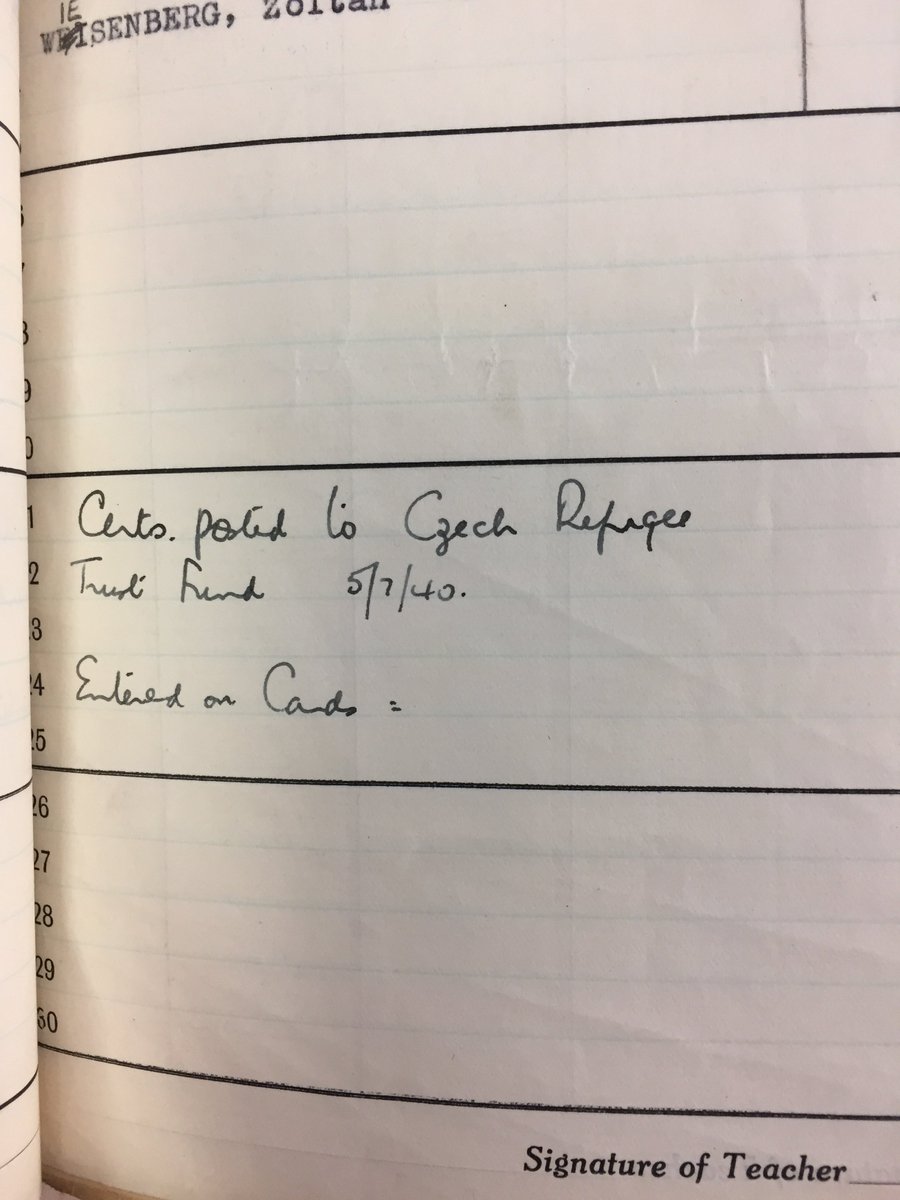 IE
WEISENBERG, Zoltan
8
9
0
1 Certs. posted to Czech Refugee
2 Trust Fund 5/7/40.
3
24 Entered on Cards =
25
26
27
28
29
30
Signature of Teacher